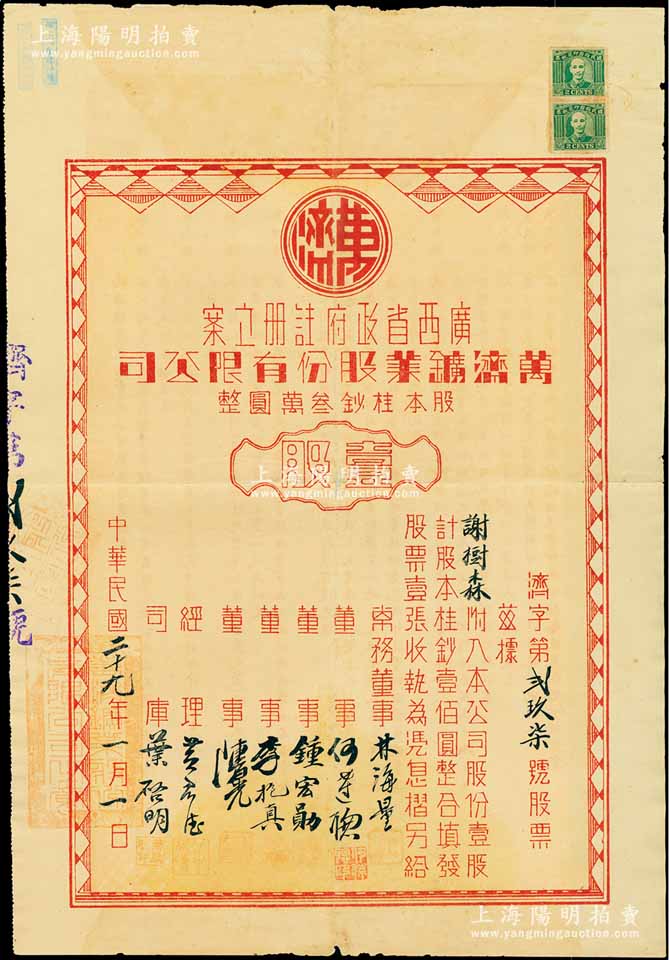 上海陽明拍賣
www.yangmingauction.com
2 CENTS
2 CENTS
萬濟
廣西省政府註册立案
萬濟鑛業股份有限公司
股本桂鈔叁萬圓整
壹股
上海陽明拍賣
www.yangmingauction.com
濟字第弍玖柒號股票
茲據
謝樹森附入本公司股份壹股
計股本桂鈔壹佰圓整合填發
股票壹張收執為憑息摺另給
常務董事 林海量
董事
董事 鍾宏勛
董事
董事
經理
司庫 葉啓明
中華民國二十九年一月一日
上海陽明拍賣
www.yangmingauction.com